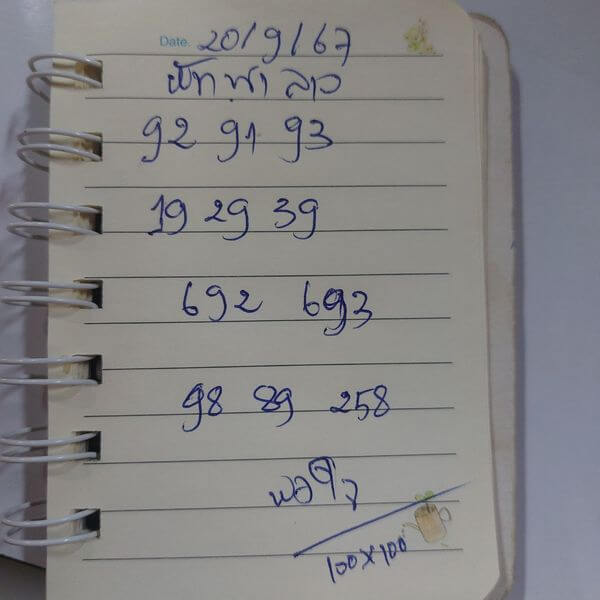 Date. 20/9/67
พัฒนา ลาว
92 91 93
19 29 39
692 693
98 89 258
พอใจ
100x100